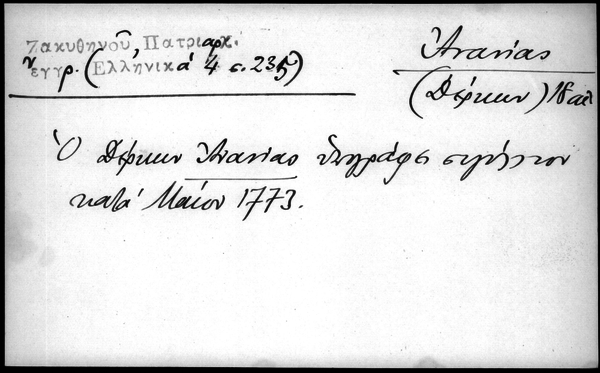 Ζακυθηνοῦ, Πατριαρχ.
ἔγγρ. (Ἑλληνικά 4 σ. 235)
Ἀνανίας
(Δέρκων) 18 αἰ
Ὁ Δέρκων Ἀνανίας ὑπογράφει σιγίλλιον
κατά Μαίον 1773.